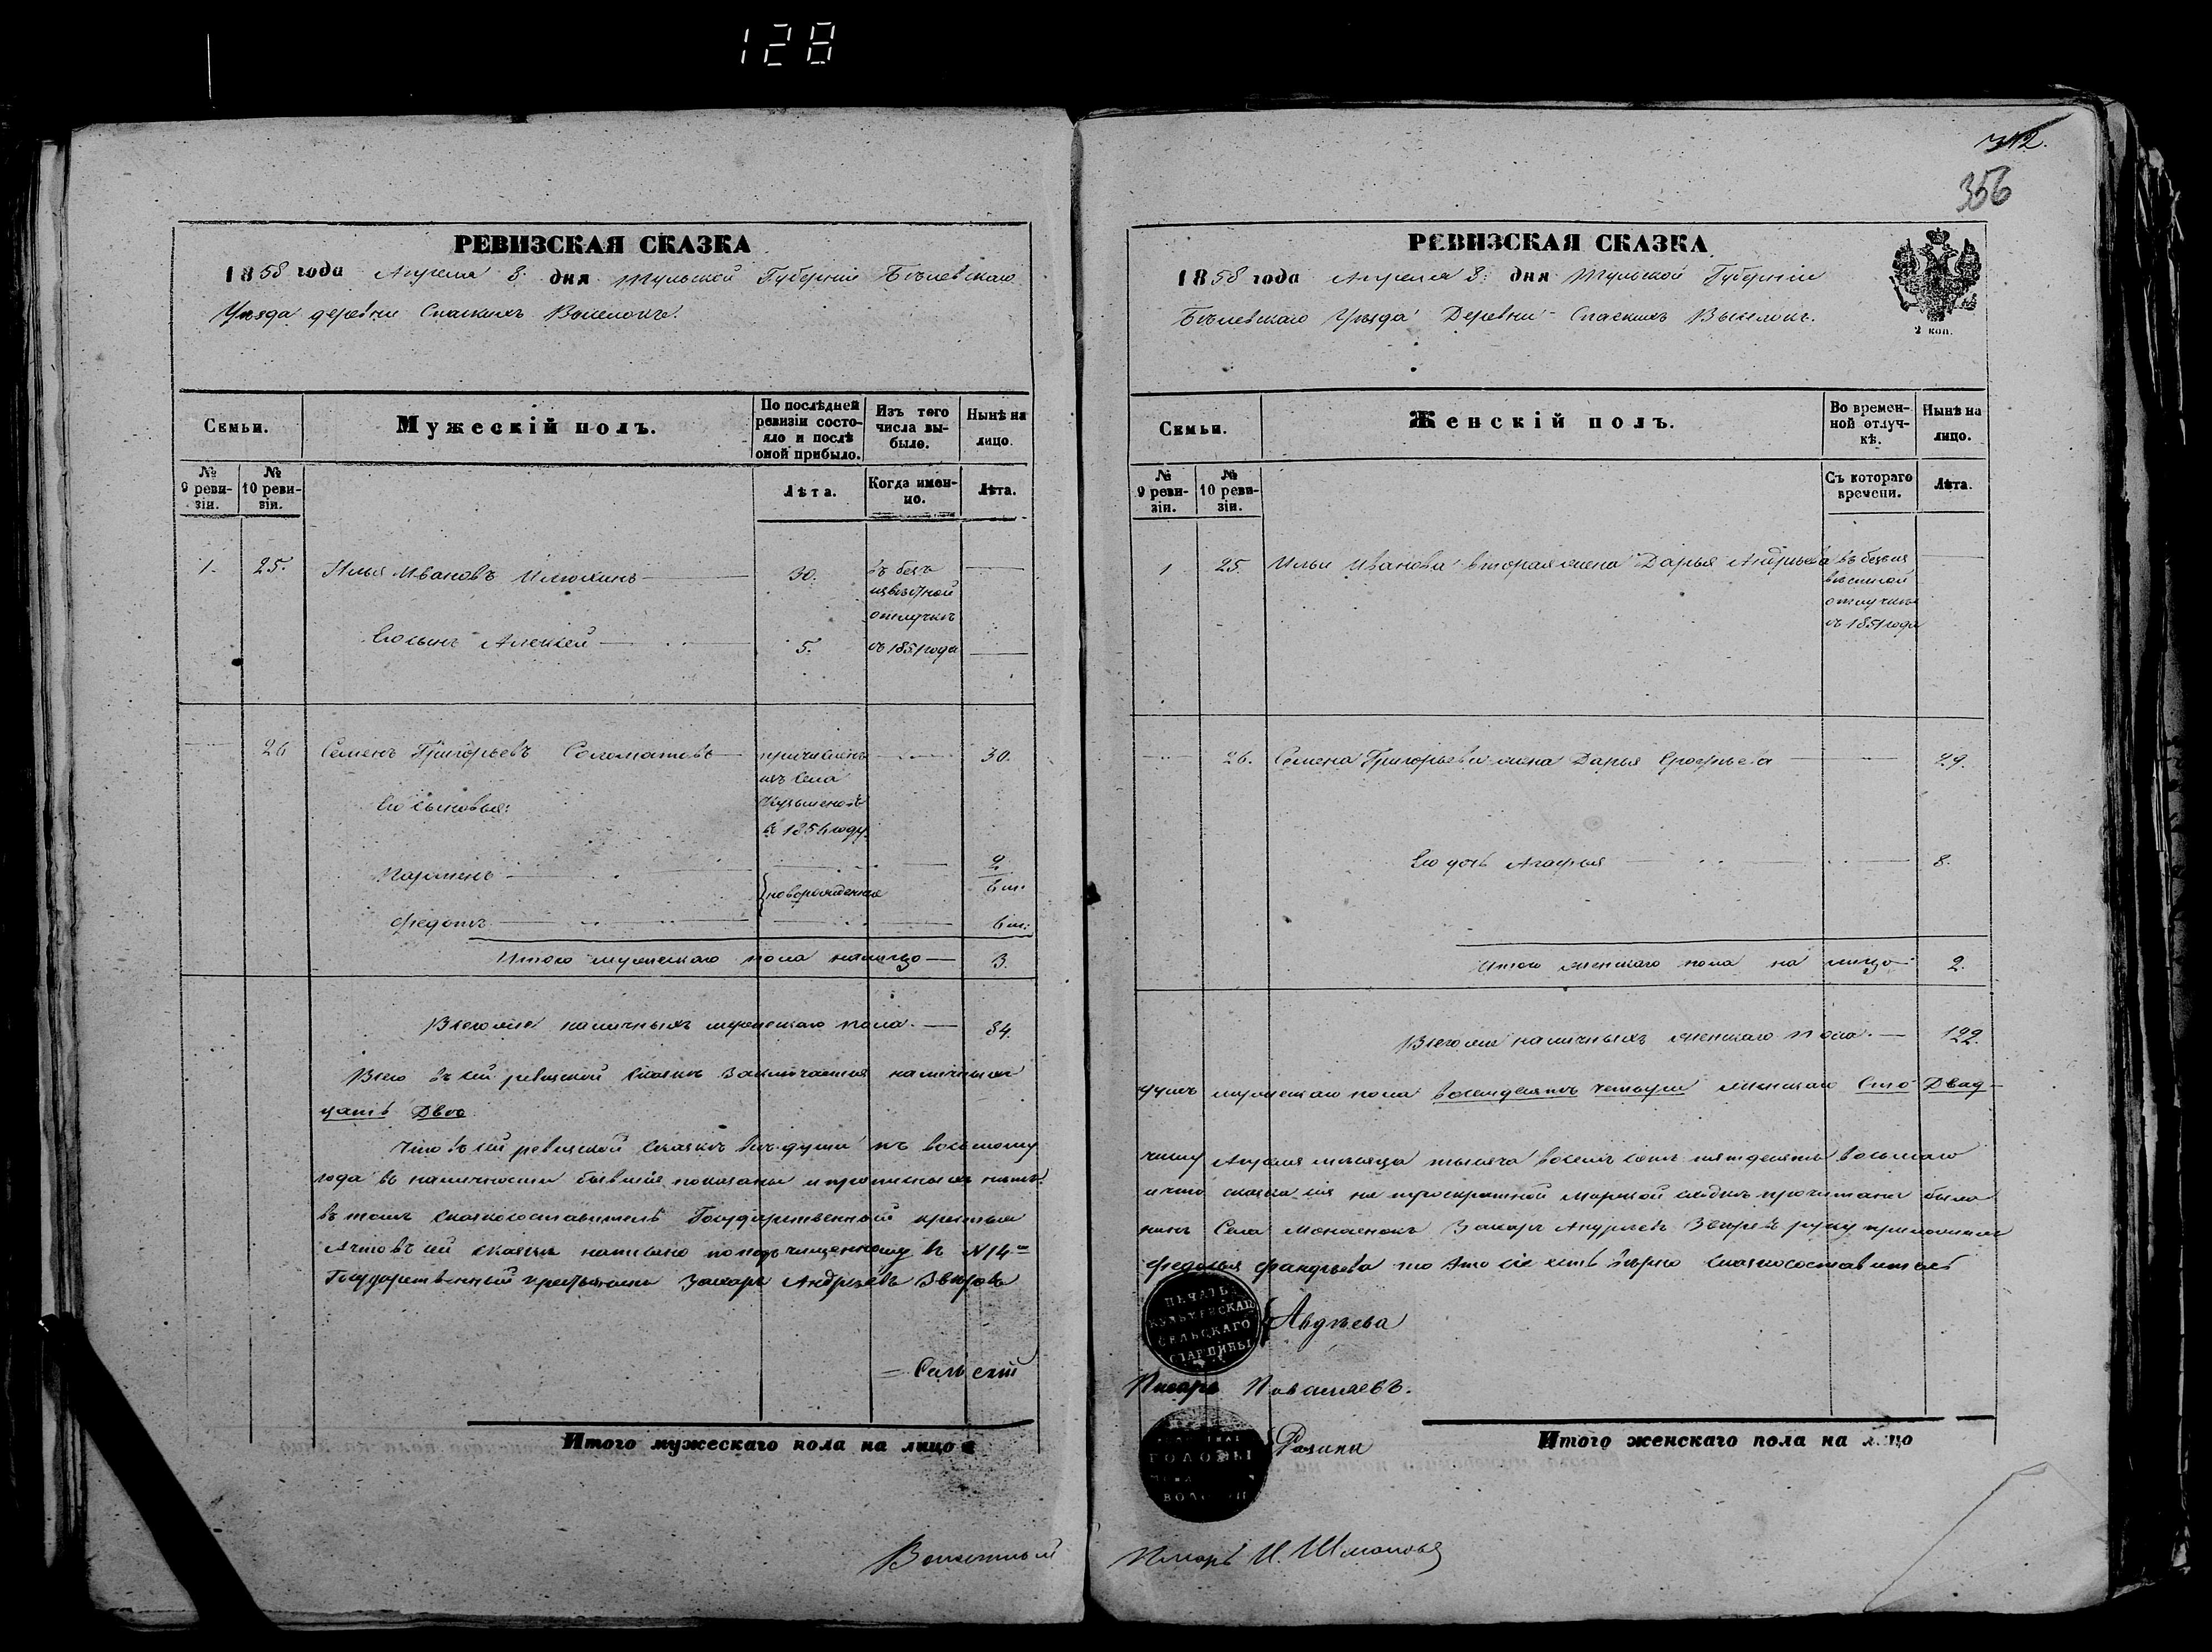 128
312.
356
РЕВИЗСКАЯ СКАЗКА
1858 года Апреля 8: дня Тульской Губерніи Бѣлевскаго
Уѣзда деревни Спаскихъ Выселокъ.
Семьи.
Мужескій полъ.
По послѣдней ревизіи состояло и послѣ оной прибыло.
Изъ того числа выбыло.
Нынѣ на лицо.
№ 9 ревизіи.
№ 10 ревизіи.
Лѣта.
Когда именно.
Лѣта.
1. 25. Илья Ивановъ Илюхинъ 30. въ безъ
извѣстной
отлучкѣ
Его сынъ Алексей 5. съ 1851 года
26 Семенъ Григорьевъ Соломатовъ причисленъ 30.
изъ Села
Его сыновья:
в 1854 году
Парменъ 2
новорожденные 6 м:
Федотъ 6 м:
Итого мужескаго пола налицо 3.
Всего же наличныхъ мужескаго пола. 84.
Всего въ сей ревизской сказкѣ заключается наличныхъ
цать Двѣ
Что въ сей ревизской сказкѣ всѣ души къ восьмому
года въ наличности бывшіе показаны и прописныхъ нѣтъ
въ томъ сказкосоставитель Государственный крестья
А что въ сей сказкѣ написано по подчищенному в №14
Государственный крестьянинъ Захаръ Андрѣевъ Звѣревъ
Сельскій
Итого мужескаго пола на лицо
Волостной
РЕВИЗСКАЯ СКАЗКА
1858 года Апреля 8: дня Тульской Губерніи
Бѣлевскаго Уѣзда Деревни Спаскихъ Выселокъ.
2 коп.
Семьи.
Женскій полъ.
Во временной отлучкѣ.
Нынѣ на лицо.
№ 9 ревизіи.
№ 10 ревизіи.
Съ котораго времени.
Лѣта.
1 25. Ильи Иванова вторая жена Дарья Андрѣева въ безъиз
вѣстной
отлучкѣ
съ 1851 года
26. Семена Григорьева жена Дарья 29.
Его дочь Агафья 8.
Итого женскаго пола на лицо 2.
Всего же наличныхъ женскаго пола. 122.
душъ мужескаго пола восемдесятъ четыре женскаго Сто Двад-
числу Апреля месяца тысяча восемь сотъ пятдесятъ восьмаго
и что сказка сія на троекратной мирской сходкѣ прочитана была
нинъ Села Захаръ Андрѣевъ Звѣревъ руку приложилъ
Федосья то это сіе есть вѣрно сказкосоставитель
ПЕЧАТЬ
СЕЛЬСКАГО
СТАРШИНЫ
Авдѣева
Писарь
ГОЛОВЫ
Итого женскаго пола на лицо
Писарь И. Шмановъ